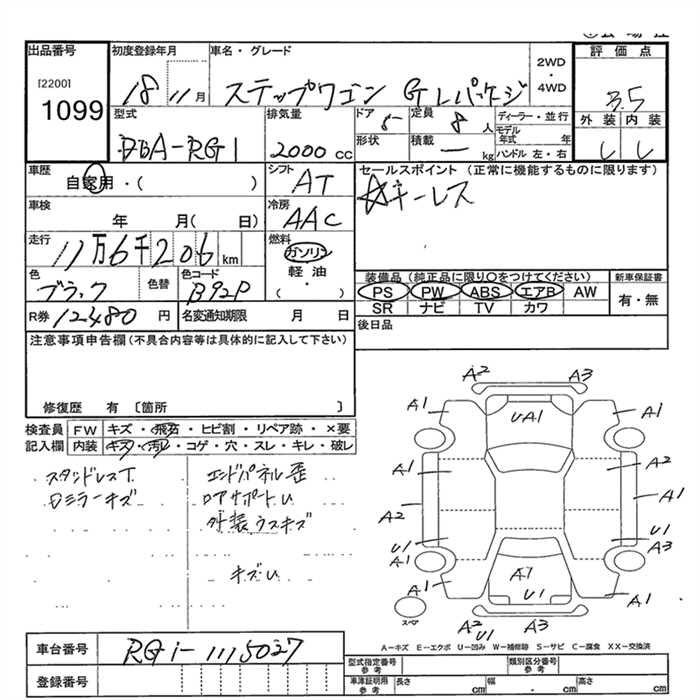 出品番号 初度登録年月 車名・グレード 2WD ・ 4WD 評価点
[2200] 1099 18 11月 ステップワゴン GLパッケージ 3.5
型式 排気量 ドア 5 定員 8 人 ディーラー・並行 外装 内装
DBA-RG1 2000 cc 形状 積載 - kg モデル年式 年 ハンドル 左・右
車歴 シフト セールスポイント (正常に機能するものに限ります)
自家用・( ) AT ☆キーレス
車検 冷房
年 月( 日) AAC
走行 燃料
11万6千206 km ガソリン
色 色替 色コード 軽油 装備品 (純正品に限り○をつけてください) 新車保証書
ブラック B92P ( ・ ) PS PW ABS エアB AW 有・無
SR ナビ TV カワ
R券 12480 円 名変通知期限 月 日 後日品
注意事項申告欄(不具合内容等は具体的に記入して下さい)
修復歴 有 〔箇所 〕
検査員 FW キズ・飛石・ヒビ割・リペア跡・×要
記入欄 内装 キズ・汚レ・コゲ・穴・スレ・キレ・破レ
エンドパネル歪
ロアサポートU
ロミラーキズ 外装ウスキズ
キズU
A2 A3
A1 UA1 A1
A1 A2
A2 A1
U1 U1 A3
A1 A1
A1 U1 A1
スペア A2 U1 A3
A-キズ E-エクボ U-凹み W-補修跡 S-サビ C-腐食 XX-交換済
車台番号 RG1-1115027
型式指定番号 参考 類別区分番号 参考
登録番号 車庫証明用 参考 長さ cm 幅 . cm 高さ cm